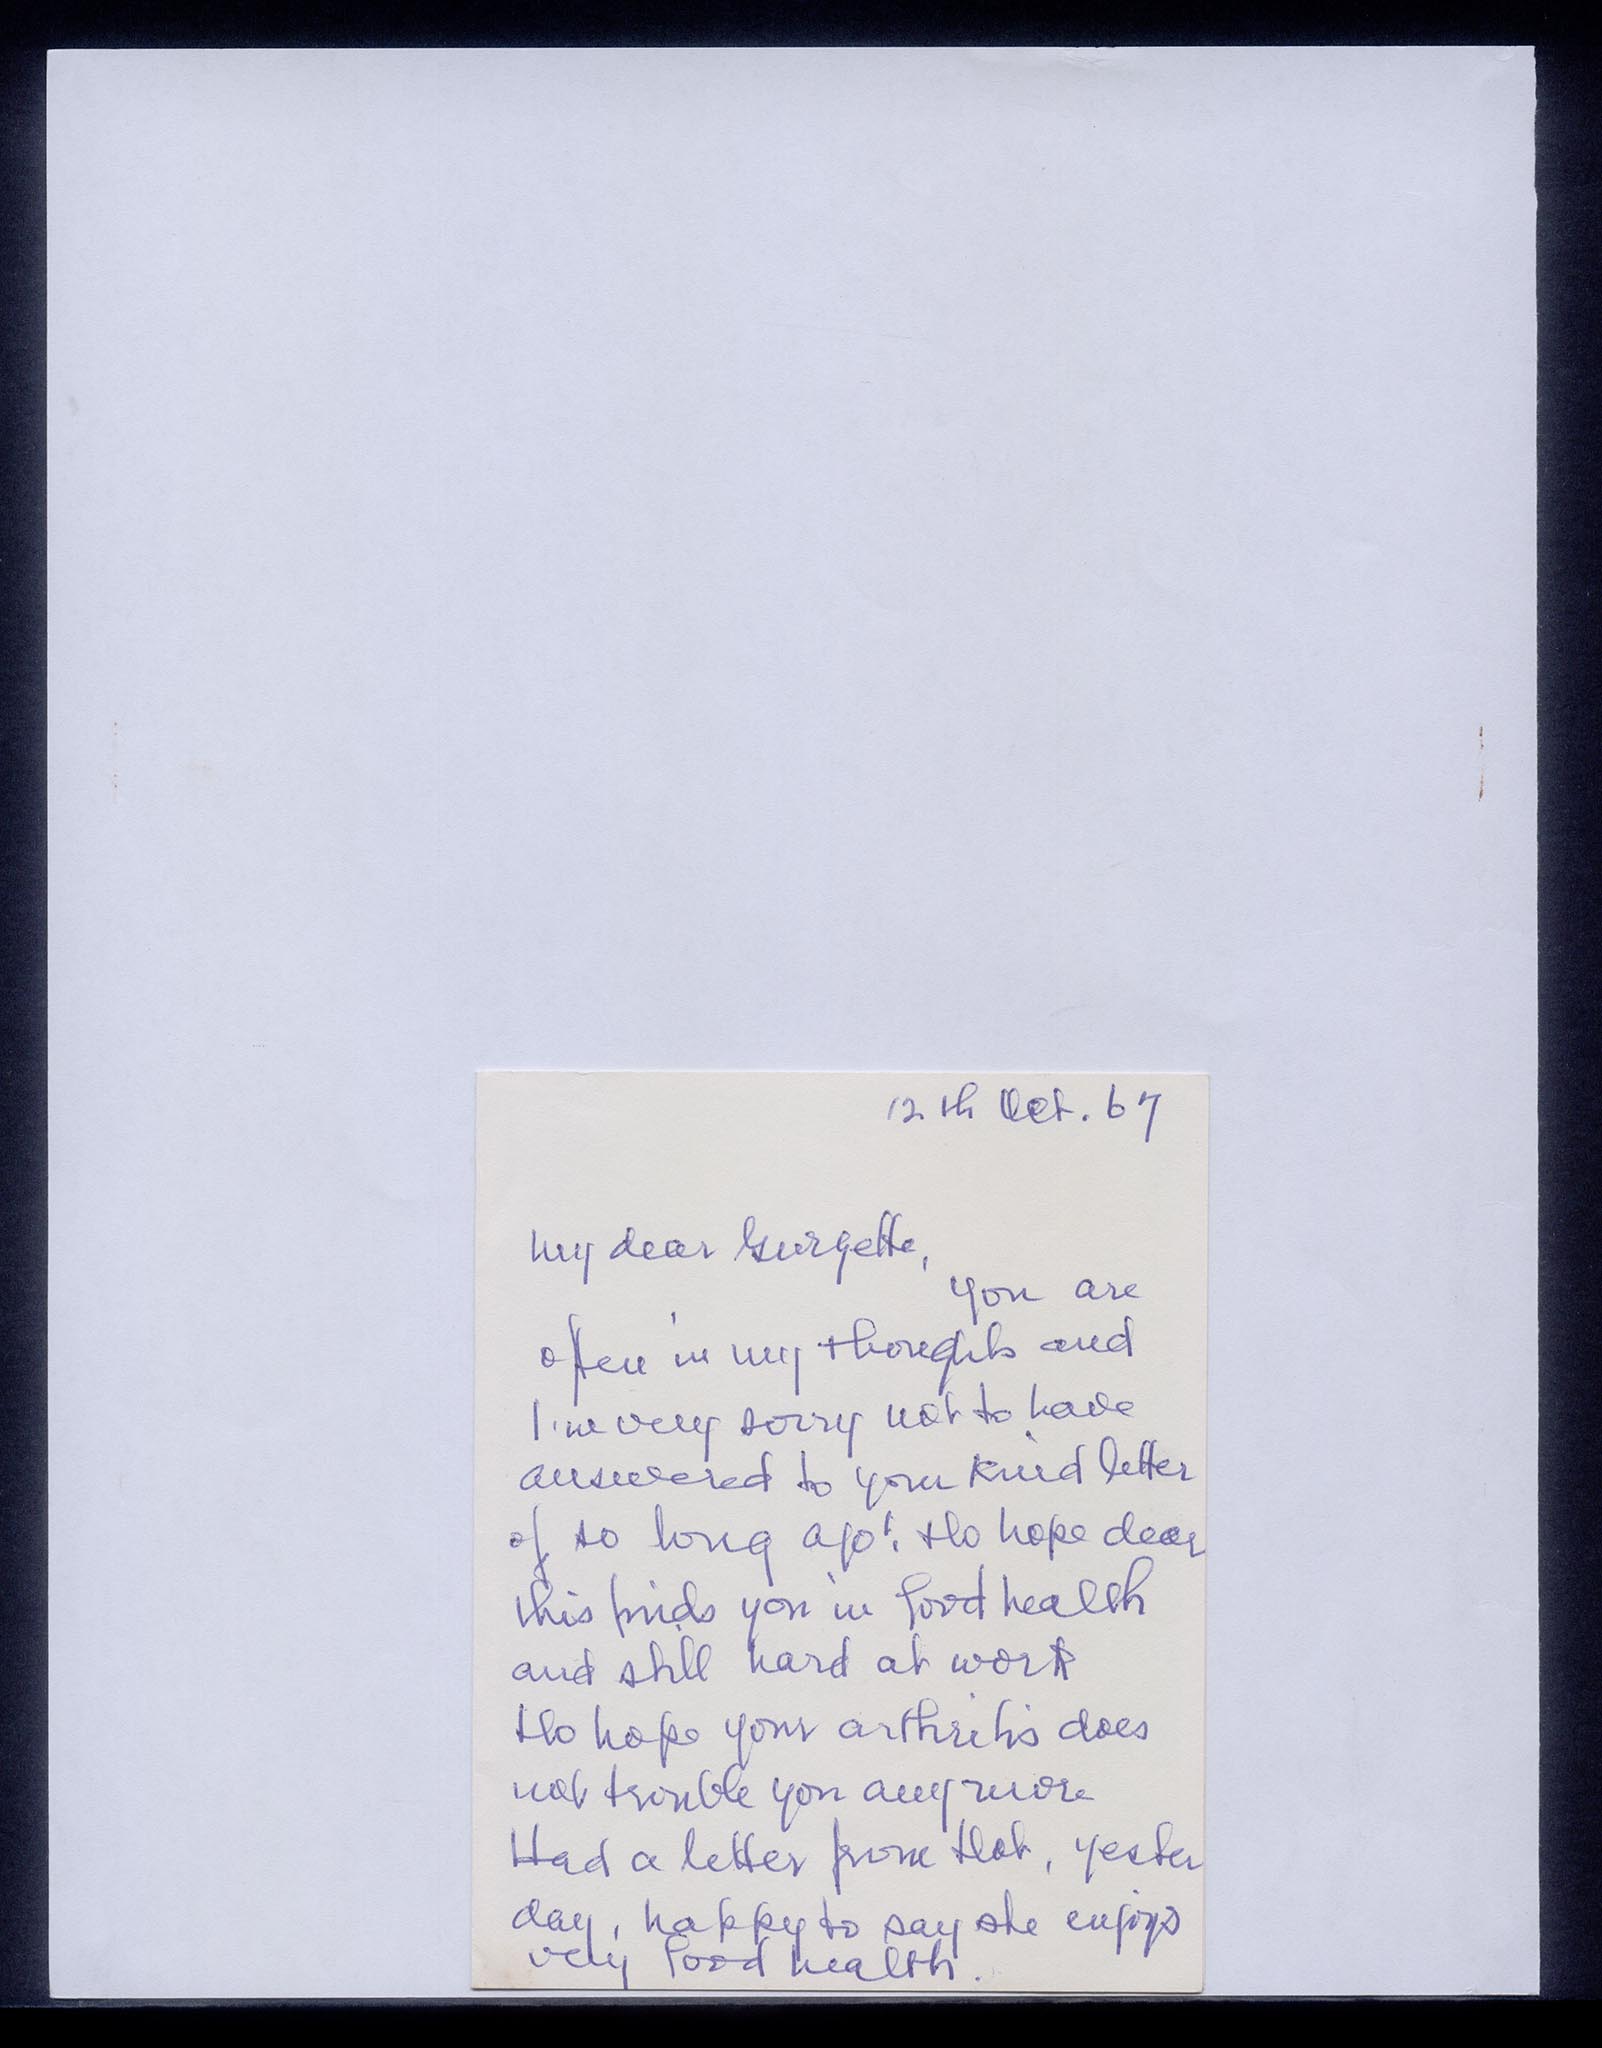 12th Oct. 67
My dear Georgette,
You are
often in my thoughts and
I'm very sorry not to have
answered to your kind letter
of so long ago! do hope dear
this finds you in good health
and still hard at work
Do hope your arthritis does
not trouble you anymore
Had a letter from Dot, yester
day, happy to say she enjoys
very good health.